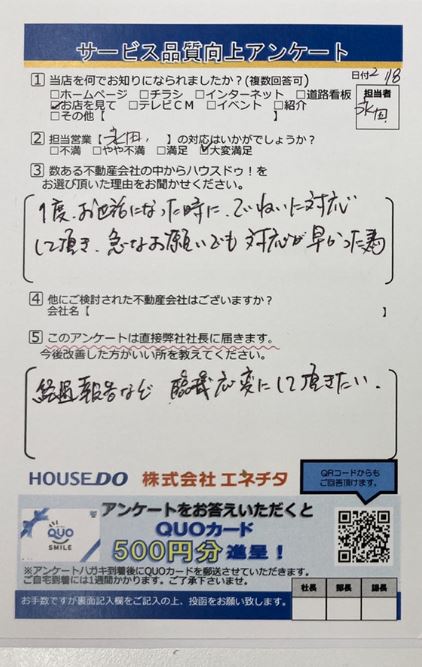 サービス品質向上アンケート
1 当店を何でお知りになられましたか？(複数回答可)
日付 2/18
□ホームページ □チラシ □インターネット □道路看板
☑お店を見て □テレビCM □イベント □紹介
□その他【 】
担当者
永田
2 担当営業【永田 】の対応はいかがでしょうか？
□不満 □やや不満 □満足 ☑大変満足
3 数ある不動産会社の中からハウスドゥ！を
お選び頂いた理由をお聞かせください。
1度、お世話になった時に、ていねいに対応
して頂き、急なお願いでも対応が早かった為
4 他にご検討された不動産会社はございますか？
会社名【 】
5 このアンケートは直接弊社社長に届きます。
今後改善した方がいい所を教えてください。
経過報告など 臨機応変にして頂きたい。
HOUSEDO 株式会社 エネチタ
QRコードからも
ご回答頂けます。
アンケートをお答えいただくと
QUOカード
500円分進呈！
QUO
SMILE
※アンケートハガキ到着後にQUOカードを郵送させていただきます。
ご自宅到着には1週間かかります。ご了承下さいませ。
お手数ですが裏面記入欄をご記入の上、投函をお願い致します。
社長 部長 課長